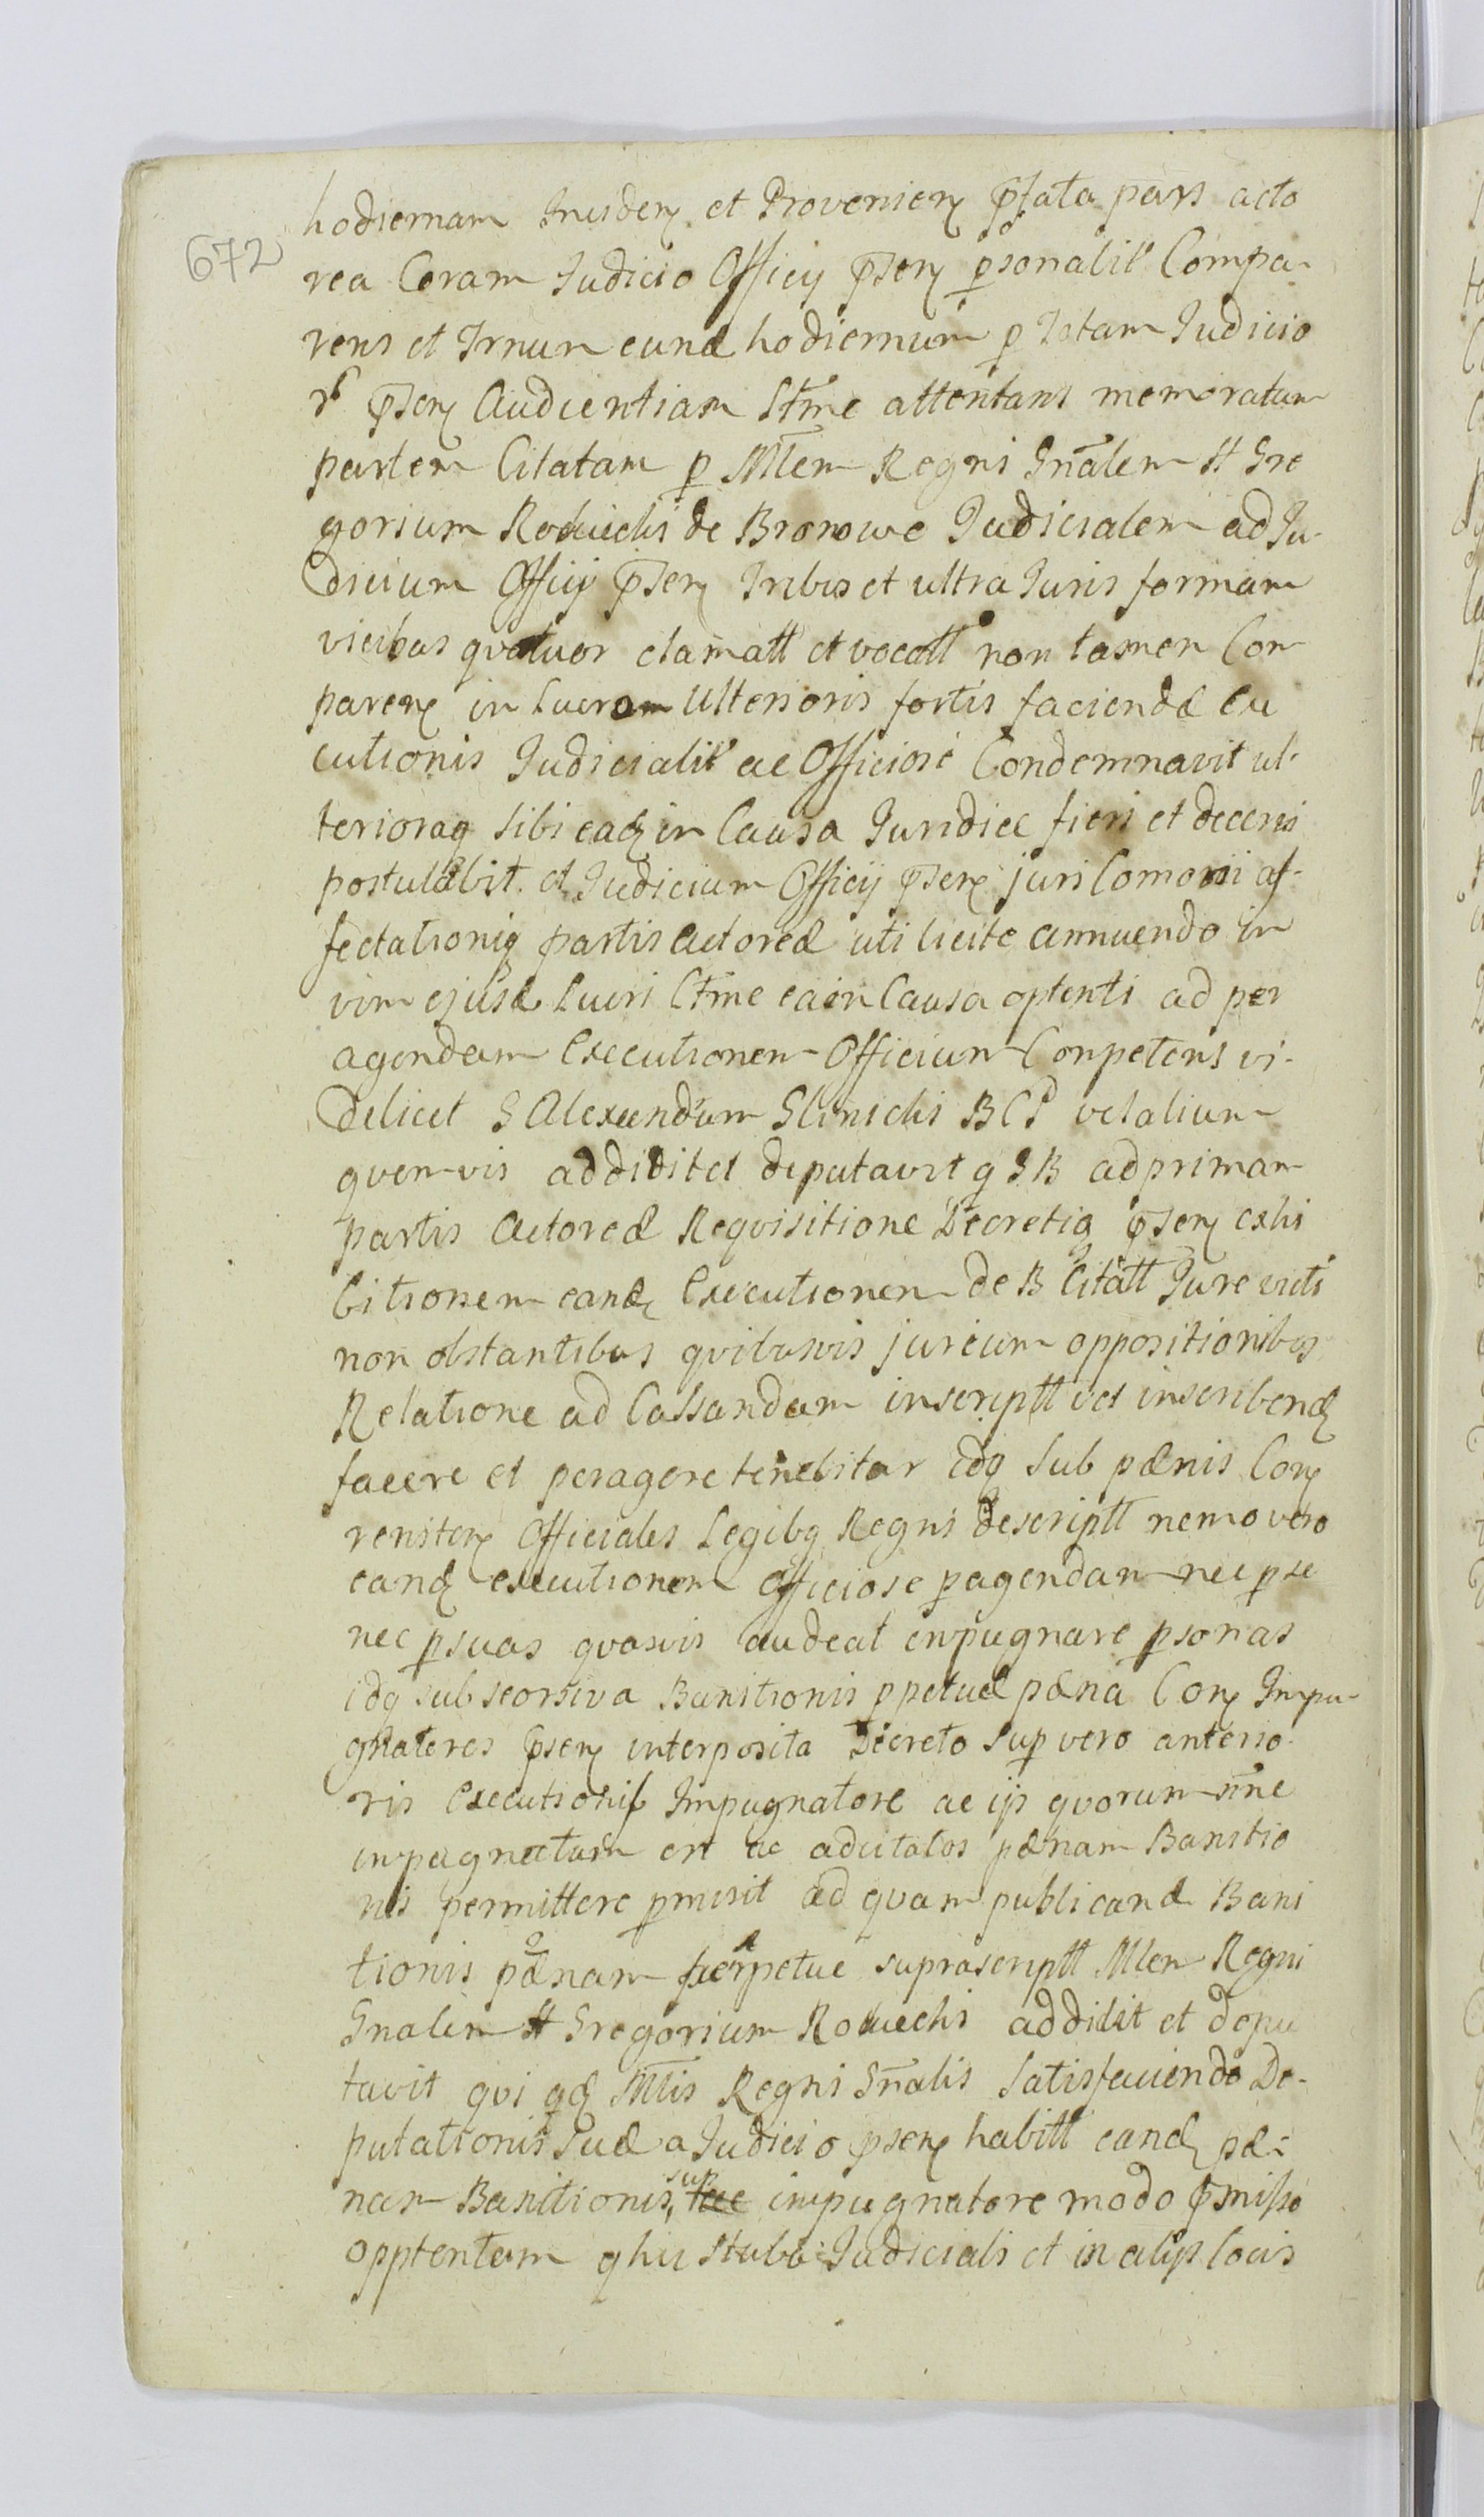 672
hodiernam Inciden et Provenien pfata pars acto
rea Coram Iudicio Officij psen psonalit Compa-
rens et Trnum eund hodiernum p totam Iudicio
psen Audientiam Ltme attentans memoratam
partem Citatam p Mlem Regni Gnalem H Gre
gorium Rowicchi de Bronowe Iudicialem ad Iu-
dicium Officij psen Tribus et ultra Iuris formam
vicibus qvatuor clamatt et vocatt non tamen Com
paren in Lucrum Ulterioris fortis faciendæ Exe
cutionis Iudicialit ac Officiose Condemnavit ul-
terioraq sibi eadq in Causa Iuridice fieri et decerni
postulabit. et Iudicium Officij psen juri Comoni af-
fectationiq partis Actoreæ uti licite annuendo in
vim ejusd Lucri Ltme ea in Causa optenti ad per
agendam Executionem Officium Conpetens vi-
delicet G Alexandrum Glinichi BCP vel alium
quem vis addidit et deputavit q GB ad primam
partis Actoreæ Reqvisitione Decretiq psen exhi
bitionem eand Executionem de B Citatt Iure victi
non obstantibus qvibusvis jurium oppositionibus
Relatione ad Cassandum inscriptt vel inscribend
facere et peragere tenebitur idq sub pænis Con
reniten Officiales Legibq Regni descriptt nemo vero
eand executionem officiose pagendam nec p se
nec p suas qvasvis audeat inpugnare psonas
idq sub seorsiva Banitionis ppetuæ pæna Con Inpu-
gnatores psen interposita Decreto sup vero anterio-
ris Executionis Impugnatore ac ijs qvorum nne
inpugnatum est ac ad citatos pænam Banitio
nis permittere pmisit ad qvam publicand Bani
tionis pænam perpetuæ suprascriptt Mlem Regni
Gnalem H Gregorium Rowicchi addidit et depu
tavit qvi qd Mlis Regni Gnalis Satisfaciendo De-
putationis suæ a Iudicio psen habitt eand pæ-
nam Banitionis, sup impugnatore modo pmisso
opptentam q hic Stubæ Iudiciali et in alijs locis